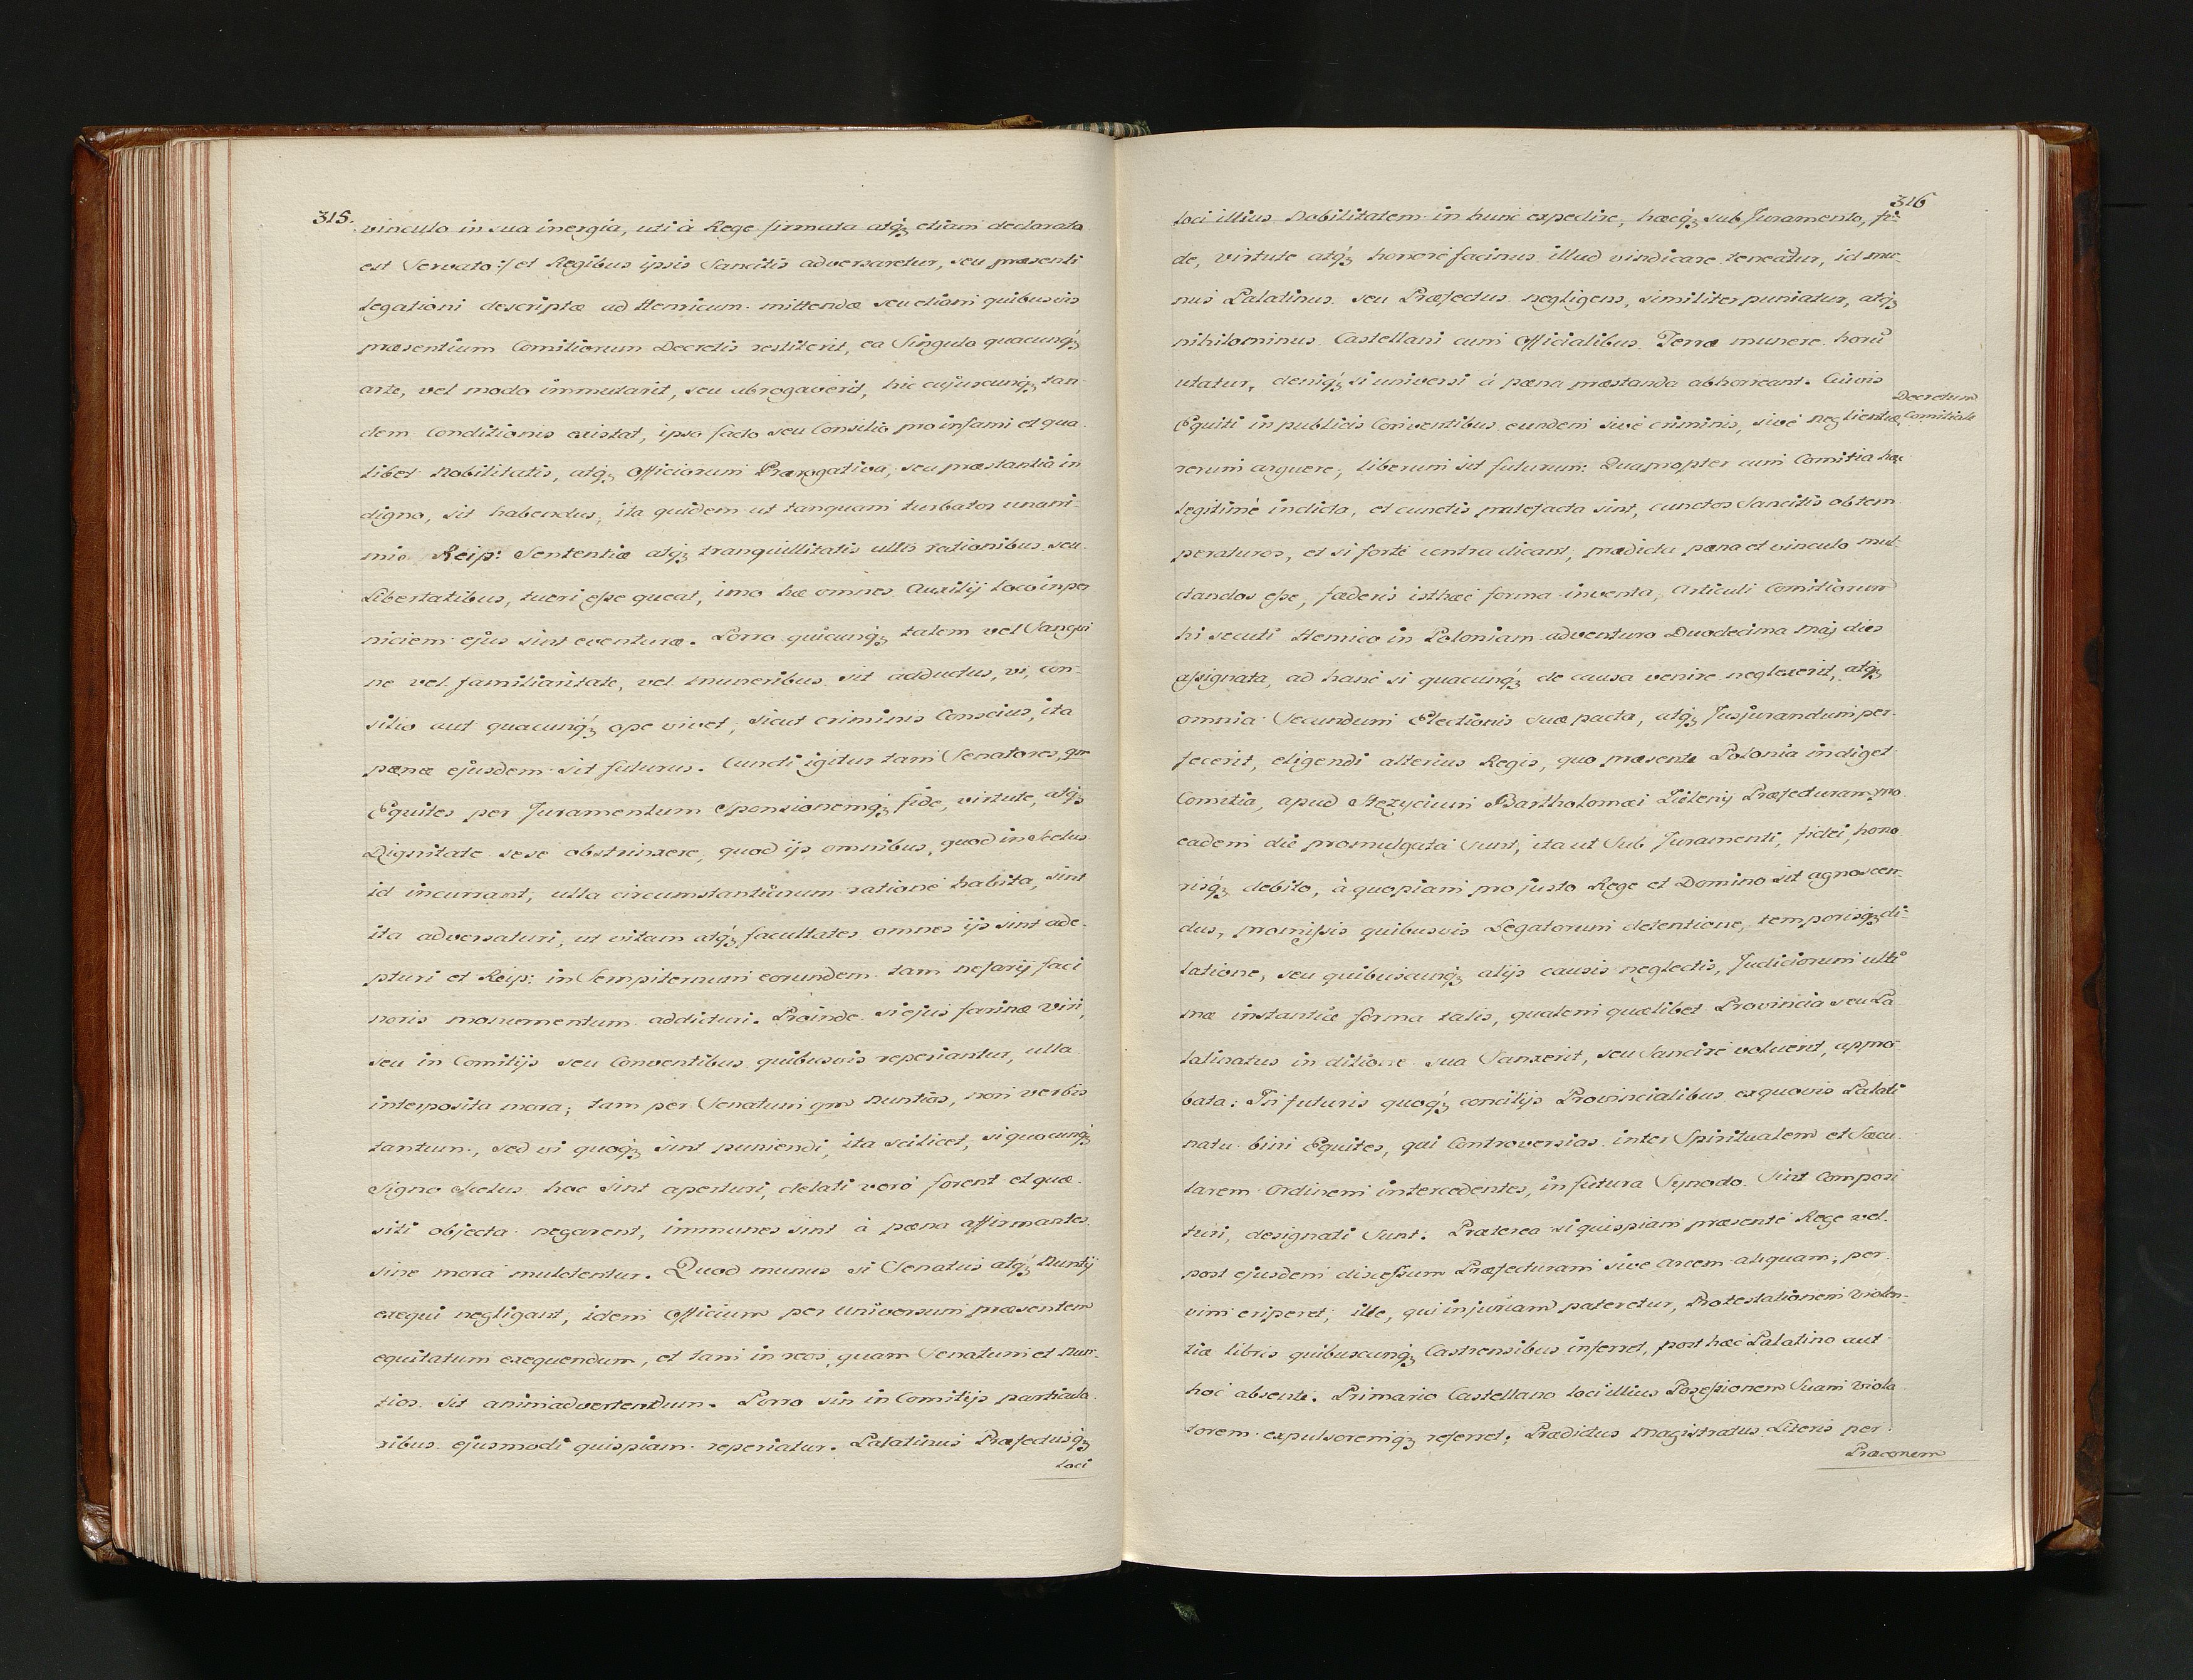 315.
vinculo in sua inergia, uti à Rege firmata atq́ꝫ etiam declarata
est Servato :/ et Regibus ipsis Sancitis adversaretur, seu præsenti
legationi descriptæ ad Henricum mittendæ seu etiam quibusvis
præsentium Comitiorum Decretis restiterit, ea Singula quacunq́ꝫ
arte, vel modo immutarit, seu abrogaverit, hic cujuscunq́ꝫ tan
dem Conditionis existat, ipso facto seu Consilio pro infami et qua
libet Nobilitatis, atq́ꝫ Officiorum Prærogativa, seu præstantia in
digno, sit habendus, ita quidem ut tanquam turbator unani
mis Reip: Sententiæ atq́ꝫ tranquillitatis ullis rationibus seu
Libertatibus, tueri eſse queat, imo hæ omnes Auxilij loco in per
niciem ejus sint eventuræ. Porro quicunq́ꝫ talem vel Sangui
ne vel familiaritate, vel muneribus sit adductus, vi, con-
silio aut quacunq́ꝫ ope vivet, sicut criminis Conscius, ita
pænæ ejusdem sit futurus. Cuncti igitur tam Senatores, qm
Equites per Juramentum Sponsionemq́ꝫ fide, virtute, atq́ꝫ
Dignitate sese obstrinxere, quod ijs omnibus, quod in Scelus
id incurrant, ulla circumstantiarum ratione habita, sint
ita adversaturi, ut vitam atq́ꝫ facultates omnes ijs sint ade-
pturi et Reip: in Sempiternum eorundem tam nefarij faci
noris monumentum addicturi. Proinde si ejus farinæ viri,
seu in Comitijs seu Conventibus quibusvis reperiantur, ulla
interposita mora; tam per Senatum qm Nuntios, non verbis
tantum, sed vi quoq́ꝫ sint puniendi, ita scilicet, si quocunq́ꝫ
Signo Scelus hoc sint aperturi, delati verò forent et quæ-
siti objecta negarent, immunes sint à pæna affirmantes
sine mora mulctentur. Quod munus si Senatus atq́ꝫ Nuntij
exequi negligant, idem Officium per universum præsentem
equitatum exequendum, et tam in reos, quam Senatum et Nun-
tios sit animadvertendum. Porro sin in Comitijs particula
ribus ejusmodi quispiam reperiatur. Palatinus Præfectusq́ꝫ
loci
316
loci illius Nobilitatem in hunc expedire, hæcq́ꝫ sub Juramento, fi-
de, virtute atq́ꝫ honore facinus illud vindicare teneatur, id mu-
nus Palatinus seu Præfectus negligens, similiter puniatur, atq́ꝫ
nihilominus Castellani cum Officialibus Terræ munere horū
utatur, deniq́ꝫ si universi à pæna præstanda abhorreant. Cuivis
Decretum
Comitiale
Equiti in publicis Conventibus eundem sive criminis, sive neglientiæ
rerum arguere, liberum sit futurum: Quapropter cum Comitia hæc
legitimè indicta, et cunctis patefacta sint, cunctos Sancitis obtem
peraturos, et si fortè contradicant, prædicta pæna et vinculo mul-
ctandos eſse, fæderis isthæc forma inventa, Articuli Comitiorum
hi secuti Henrico in Poloniam adventuro Duodecima Maj dies
aſsignata, ad hanc si quacunq́ꝫ de causa venire neglexerit, atq́ꝫ
omnia Secundum Electionis suæ pacta, atq́ꝫ Jusjurandum per-
fecerit, eligendi alterius Regis, quo præsente Polonia indiget
Comitia, apud Stezycium Bartholomæi Zielenij Præfecturam pro
eadem die promulgata sunt, ita ut Sub Juramenti, fidei, hono
risq́ꝫ debito, à quopiam pro justo Rege et Domino sit agnoscen-
dus, promiſsis quibusvis Legatorum detentione, temporisq́ꝫ di-
latione, seu quibuscunq́ꝫ alijs causis neglectis, Judiciorum ulti
mæ instantiæ forma talis, qualem quælibet Provincia seu Pa
latinatus in ditione sua Sanxerit, seu Sancire voluerit, appro
bata. In futuris quoq́ꝫ concilijs Provincialibus ex quovis Palati
natu bini Equites, qui Controversias inter Spiritualem et Sæcu
larem Ordinem intercedentes, in futura Synodo sint Composi
turi, designati sunt. Præterea si quispiam præsente Rege vel
post ejusdem disceſsum Præfecturam sive Arcem aliquam, per
vim eriperet, ille, qui injuriam pateretur, Protestationem violen-
tiæ libris quibuscunq́ꝫ Castrensibus inferret, post hæc Palatino aut
hoc absente. Primario Castellano loci illius Poseſsionem Suam viola
torem expulsoremq́ꝫ referret; Prædictus Magistratus Literis per
Præconem